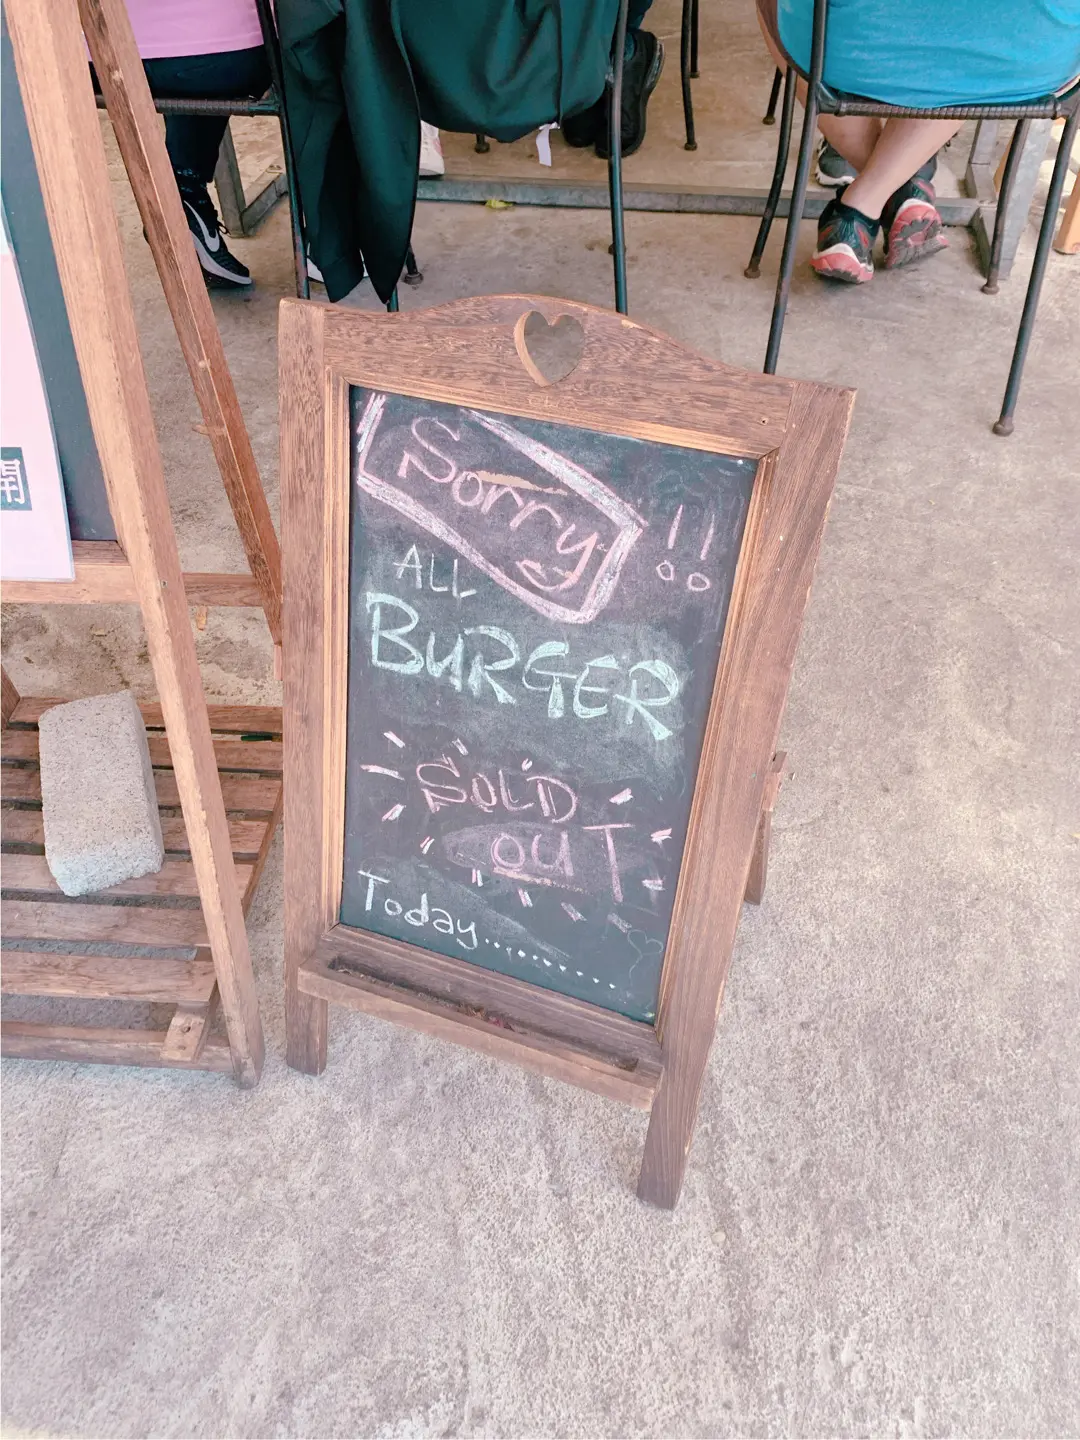 Sorry !!
ALL
BURGER
SOLD
OUT
Today..........